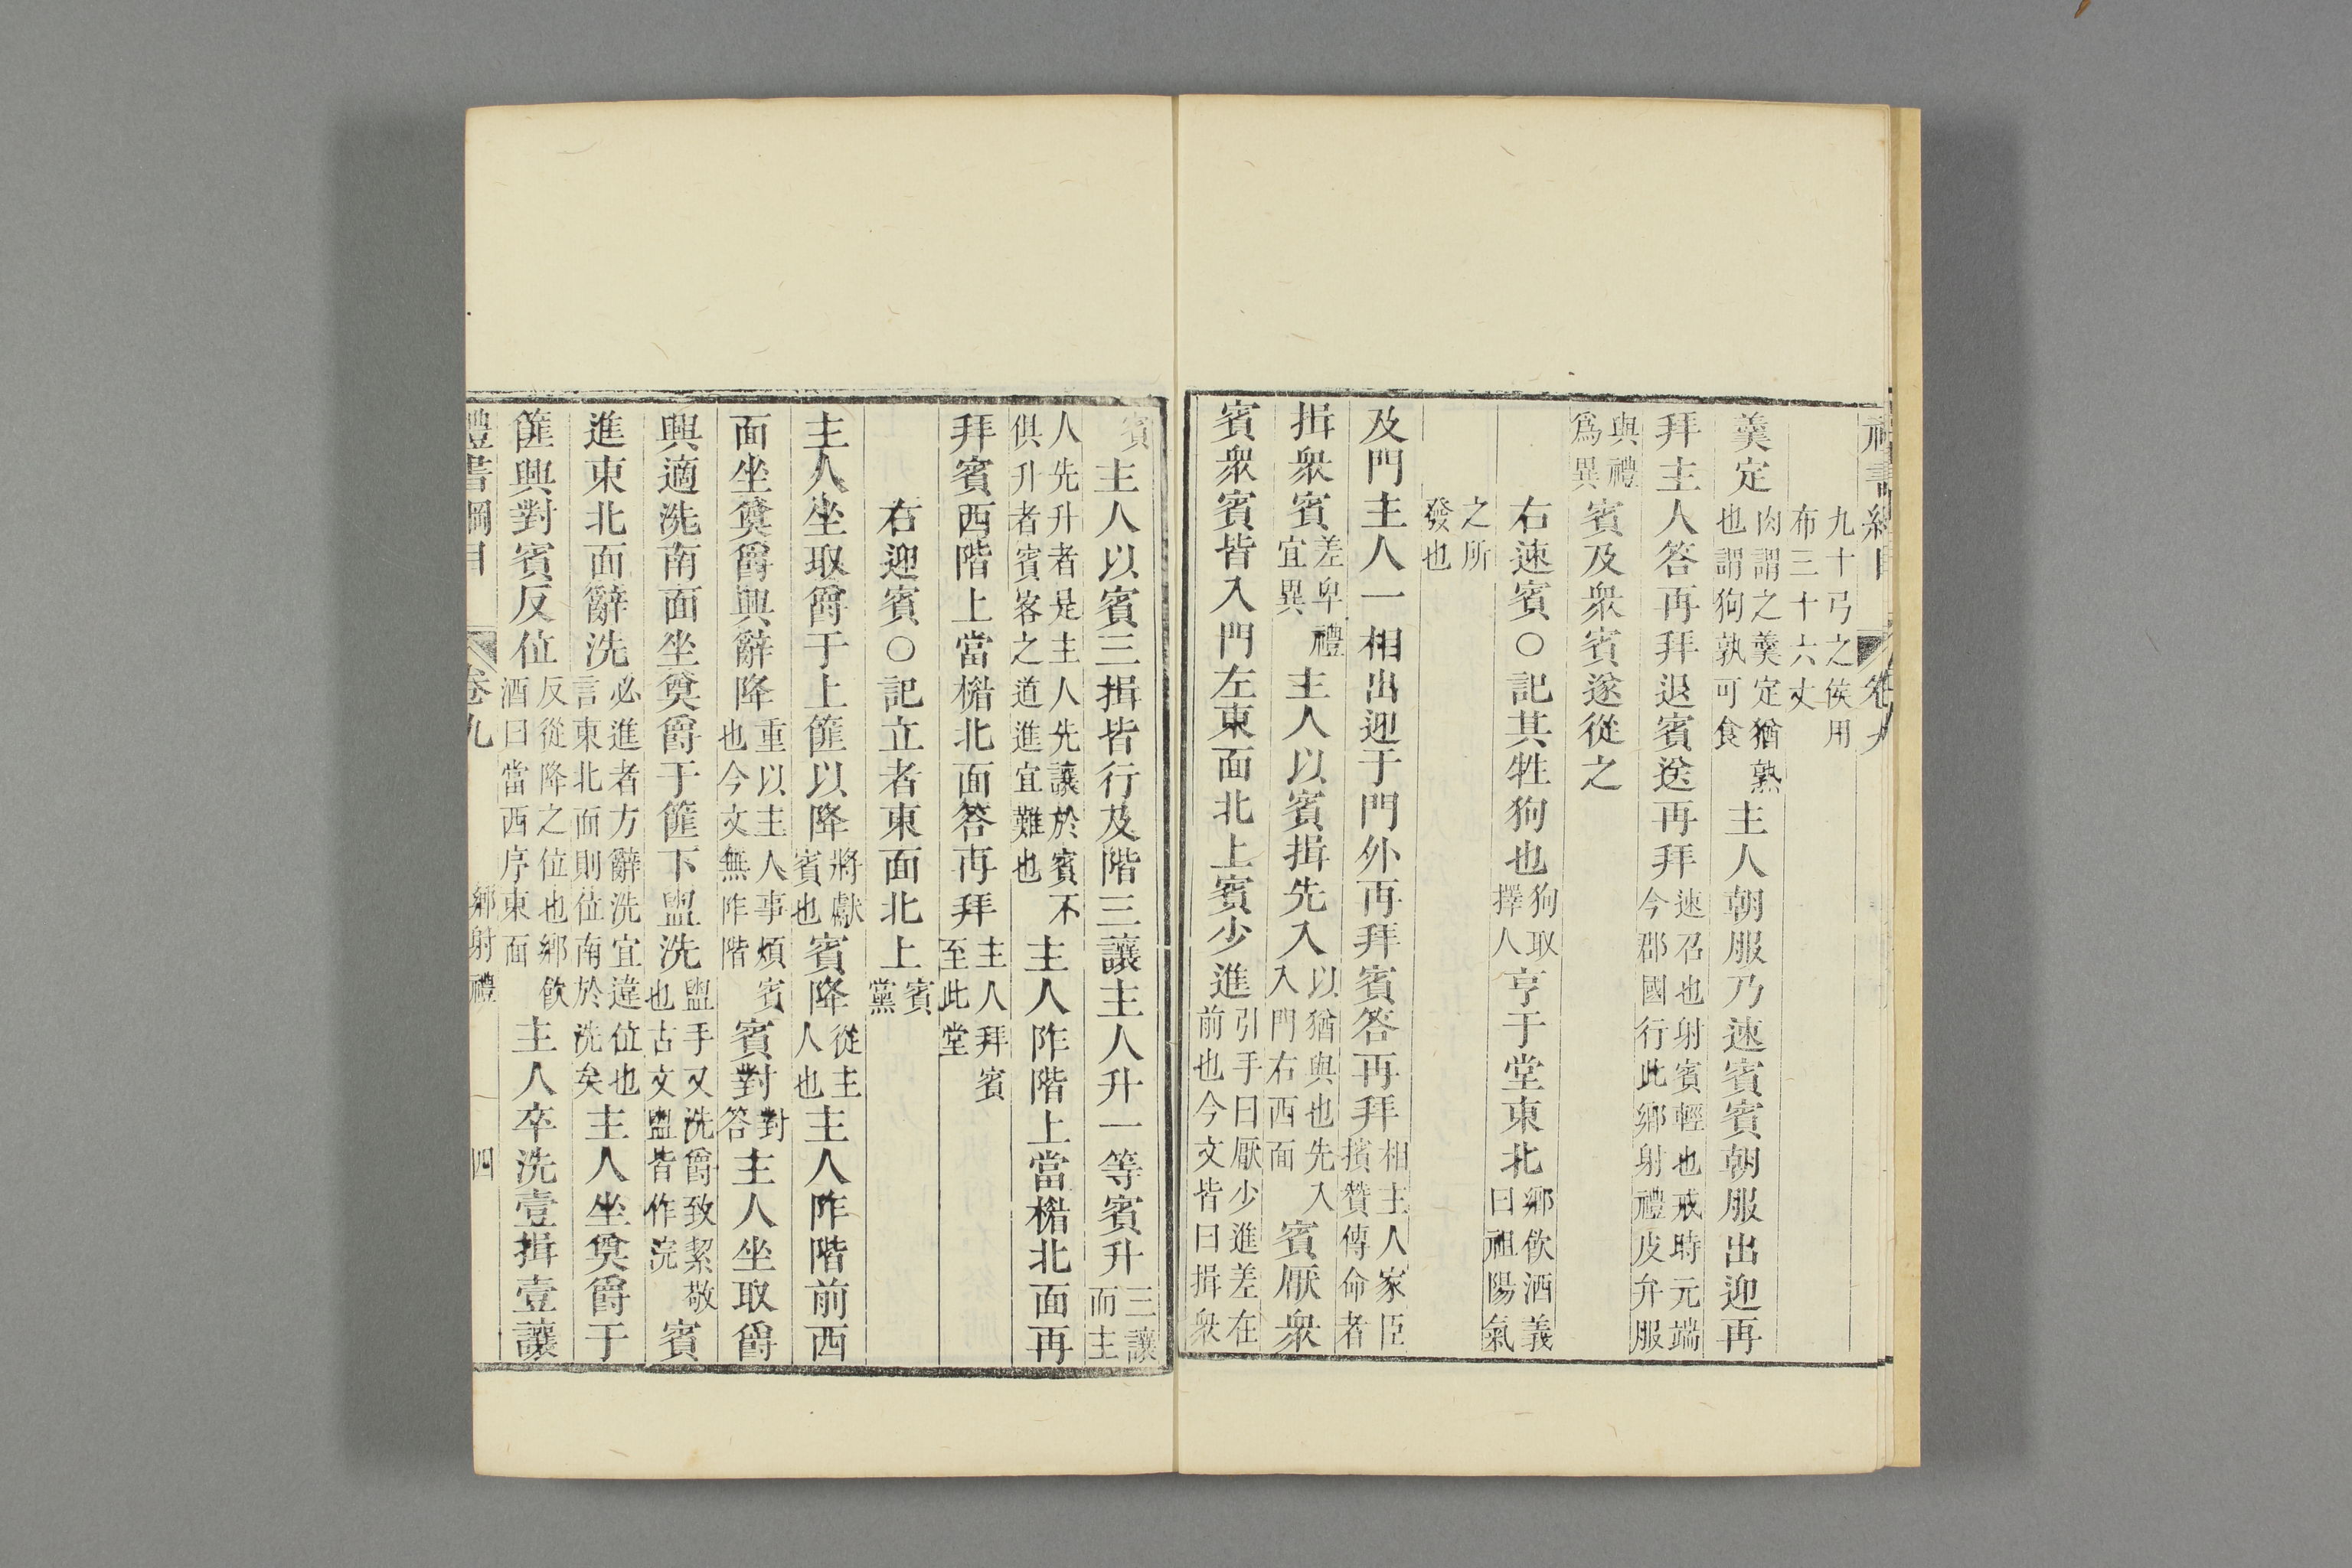 九十弓之侯用布三十六丈
羹定肉謂之羹定猶熟也謂狗孰可食主人朝服乃速賓賓朝服出迎再
拜主人答再拜退賓送再拜速召也射賓輕也戒時元端今郡國行此鄉射禮皮弁服
與禮爲異賓及衆賓遂從之
右速賓○記其牲狗也狗取擇人亨于堂東北鄉飲酒義曰祖陽氣
之所發也
及門主人一相出迎于門外再拜賓答再拜相主人家臣擯贊傳命者
揖衆賓差卑禮宜異主人以賓揖先入以猶與也先入入門右西面賓厭衆
賓衆賓皆入門左東面北上賓少進引手曰厭少進差在前也今文皆曰揖衆
賓主人以賓三揖皆行及階三讓主人升一等賓升三讓而主
人先升者是主人先讓於賓不俱升者賓客之道進宜難也主人阼階上當楣北面再
拜賓西階上當楣北面答再拜主人拜賓至此堂
右迎賓○記立者東面北上賓黨
主人坐取爵于上篚以降將獻賓也賓降從主人也主人阼階前西
面坐奠爵興辭降重以主人事煩賓也今文無阼階賓對對答主人坐取爵
興適洗南面坐奠爵于篚下盥洗盥手又洗爵致絜敬也古文盥皆作浣賓
進東北面辭洗必進者方辭洗宜違位也言東北面則位南於洗矣主人坐奠爵于
篚興對賓反位反從降之位也鄉飲酒曰當西序東面主人卒洗壹揖壹讓
禮書綱目 卷九 鄉射禮 四